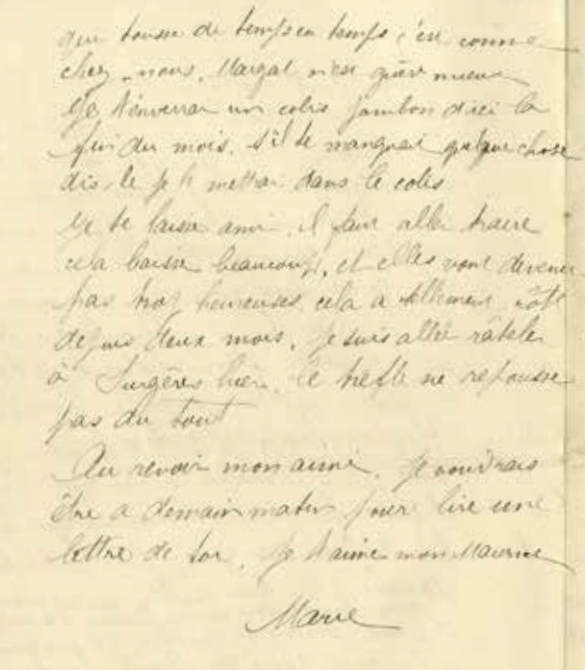 qui tousse de temps en temps c'est comme
chez nous. Margat n'est guère mieux
Je t'enverrai un colis jambon d'ici la
fin du mois. s'il te manquait quelque chose
dis le je le mettrai dans le colis
Je te laisse ami, il faut aller traire
cela baisse beaucoup, et elles vont devenir
pas trop heureuses cela a tellement rôti
depuis deux mois. Je suis allée râteler
à Surgères hier. le trefle ne repousse
pas du tout
Au revoir mon aimé. Je voudrais
être a demain matin pour lire une
lettre de toi. Je t'aime mon Maurice
Marie